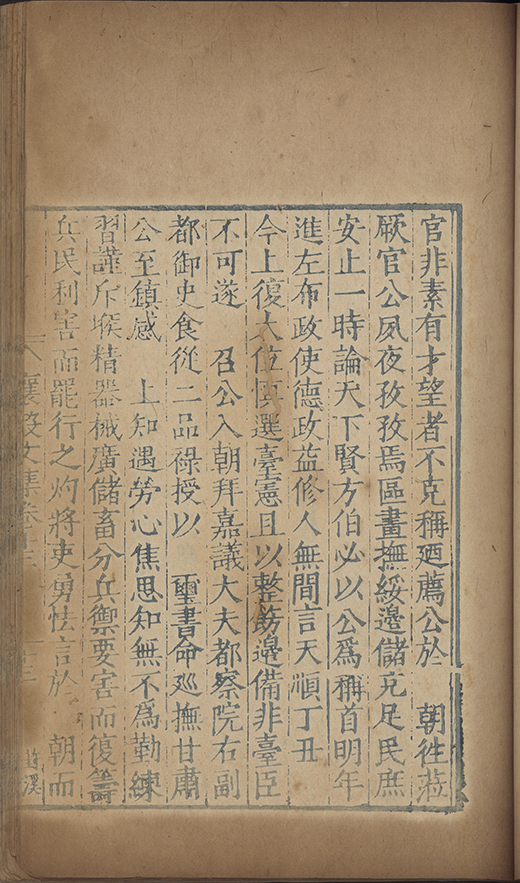 官非素有才望者不克稱廼薦公於　朝徃蒞
厥官公夙夜孜孜焉區畫撫綏邊儲克足民庶
安止一時論天下賢方伯必以公爲稱首明年
進左布政使德政益修人無間言天順丁丑
今上復大位慎選臺憲且以整飭邊備非臺臣
不可遂　召公入朝拜嘉議大夫都察院右副
都御史食從二品祿授以　璽書命廵撫甘肅
公至鎮感　上知遇勞心焦思知無不為勤練
習謹斥堠精器械廣儲畜分兵禦要害而復籌
兵民利害而罷行之灼將吏勇怯言於　朝而
襄毅文集卷十三